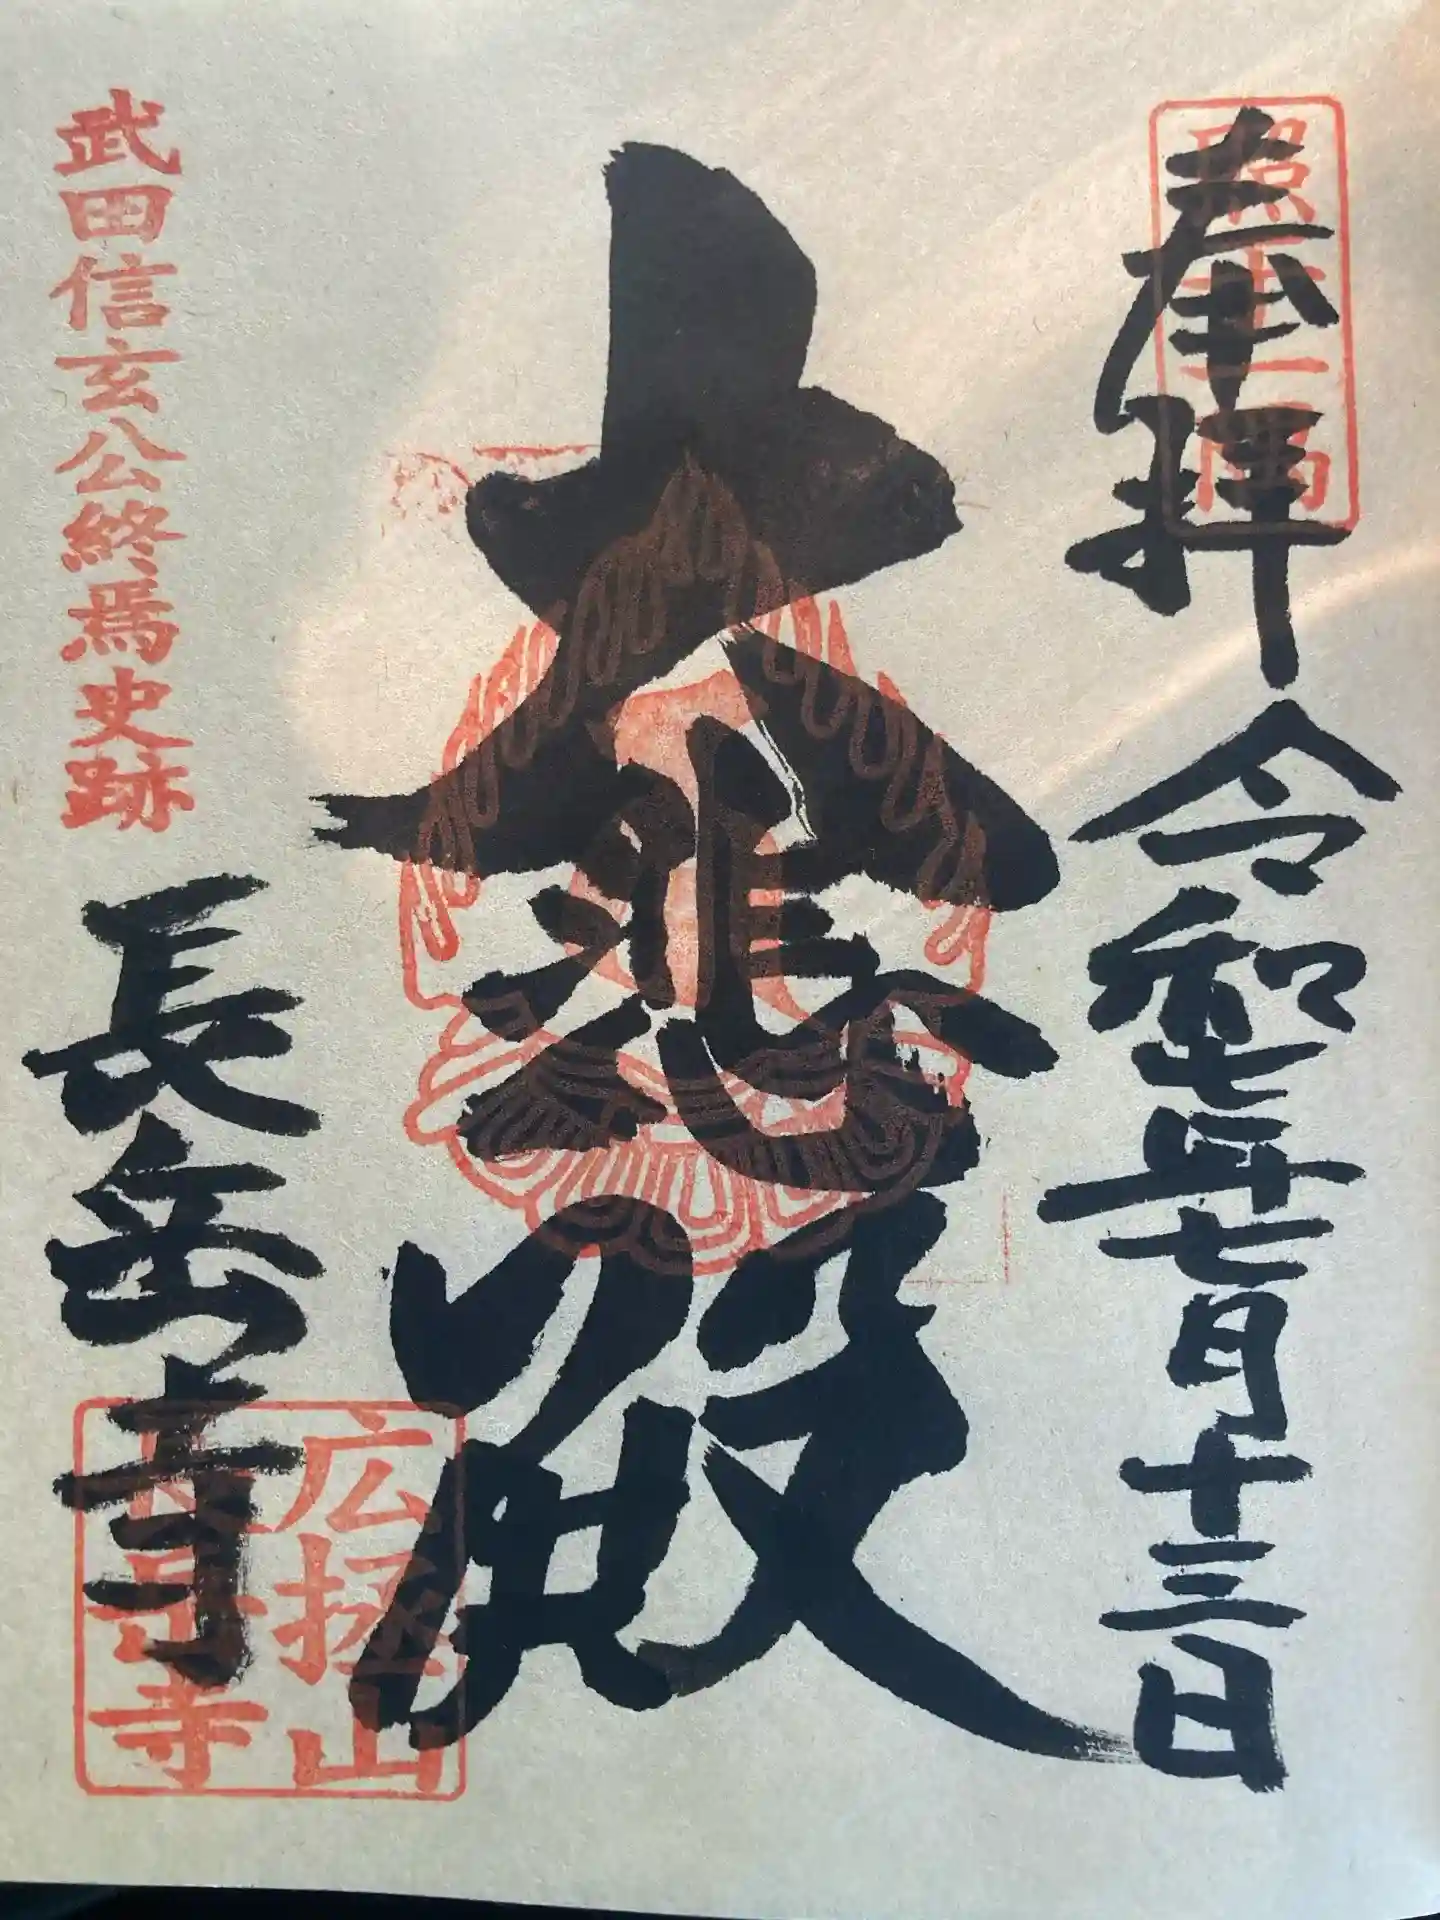 奉拝 令和七年七月十三日
大悲殿
武田信玄公終焉史跡
長岳寺
広拯山
長岳寺